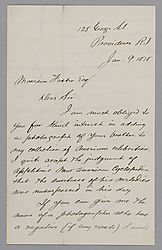 128 George St.
Providence R.I
Jan. 9, 1878
Morrison Foster Esq
Dear Sir:
I am much obliged to
you for kind interest in adding
a photograph of your brother to
my collection of American celebrities.
I quite accept the judgment of
Appletons' New American Cyclopedia
that the sweetness of his melodies
was unsurpassed in his day
If you can give me the
name of a photographer who has
a negative (if any exists) I